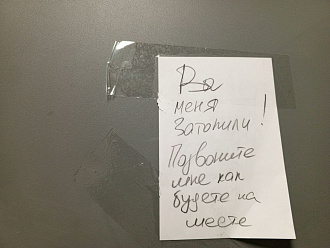 Вы
меня
Затопили!
Позвоните
мне как
будете на
месте